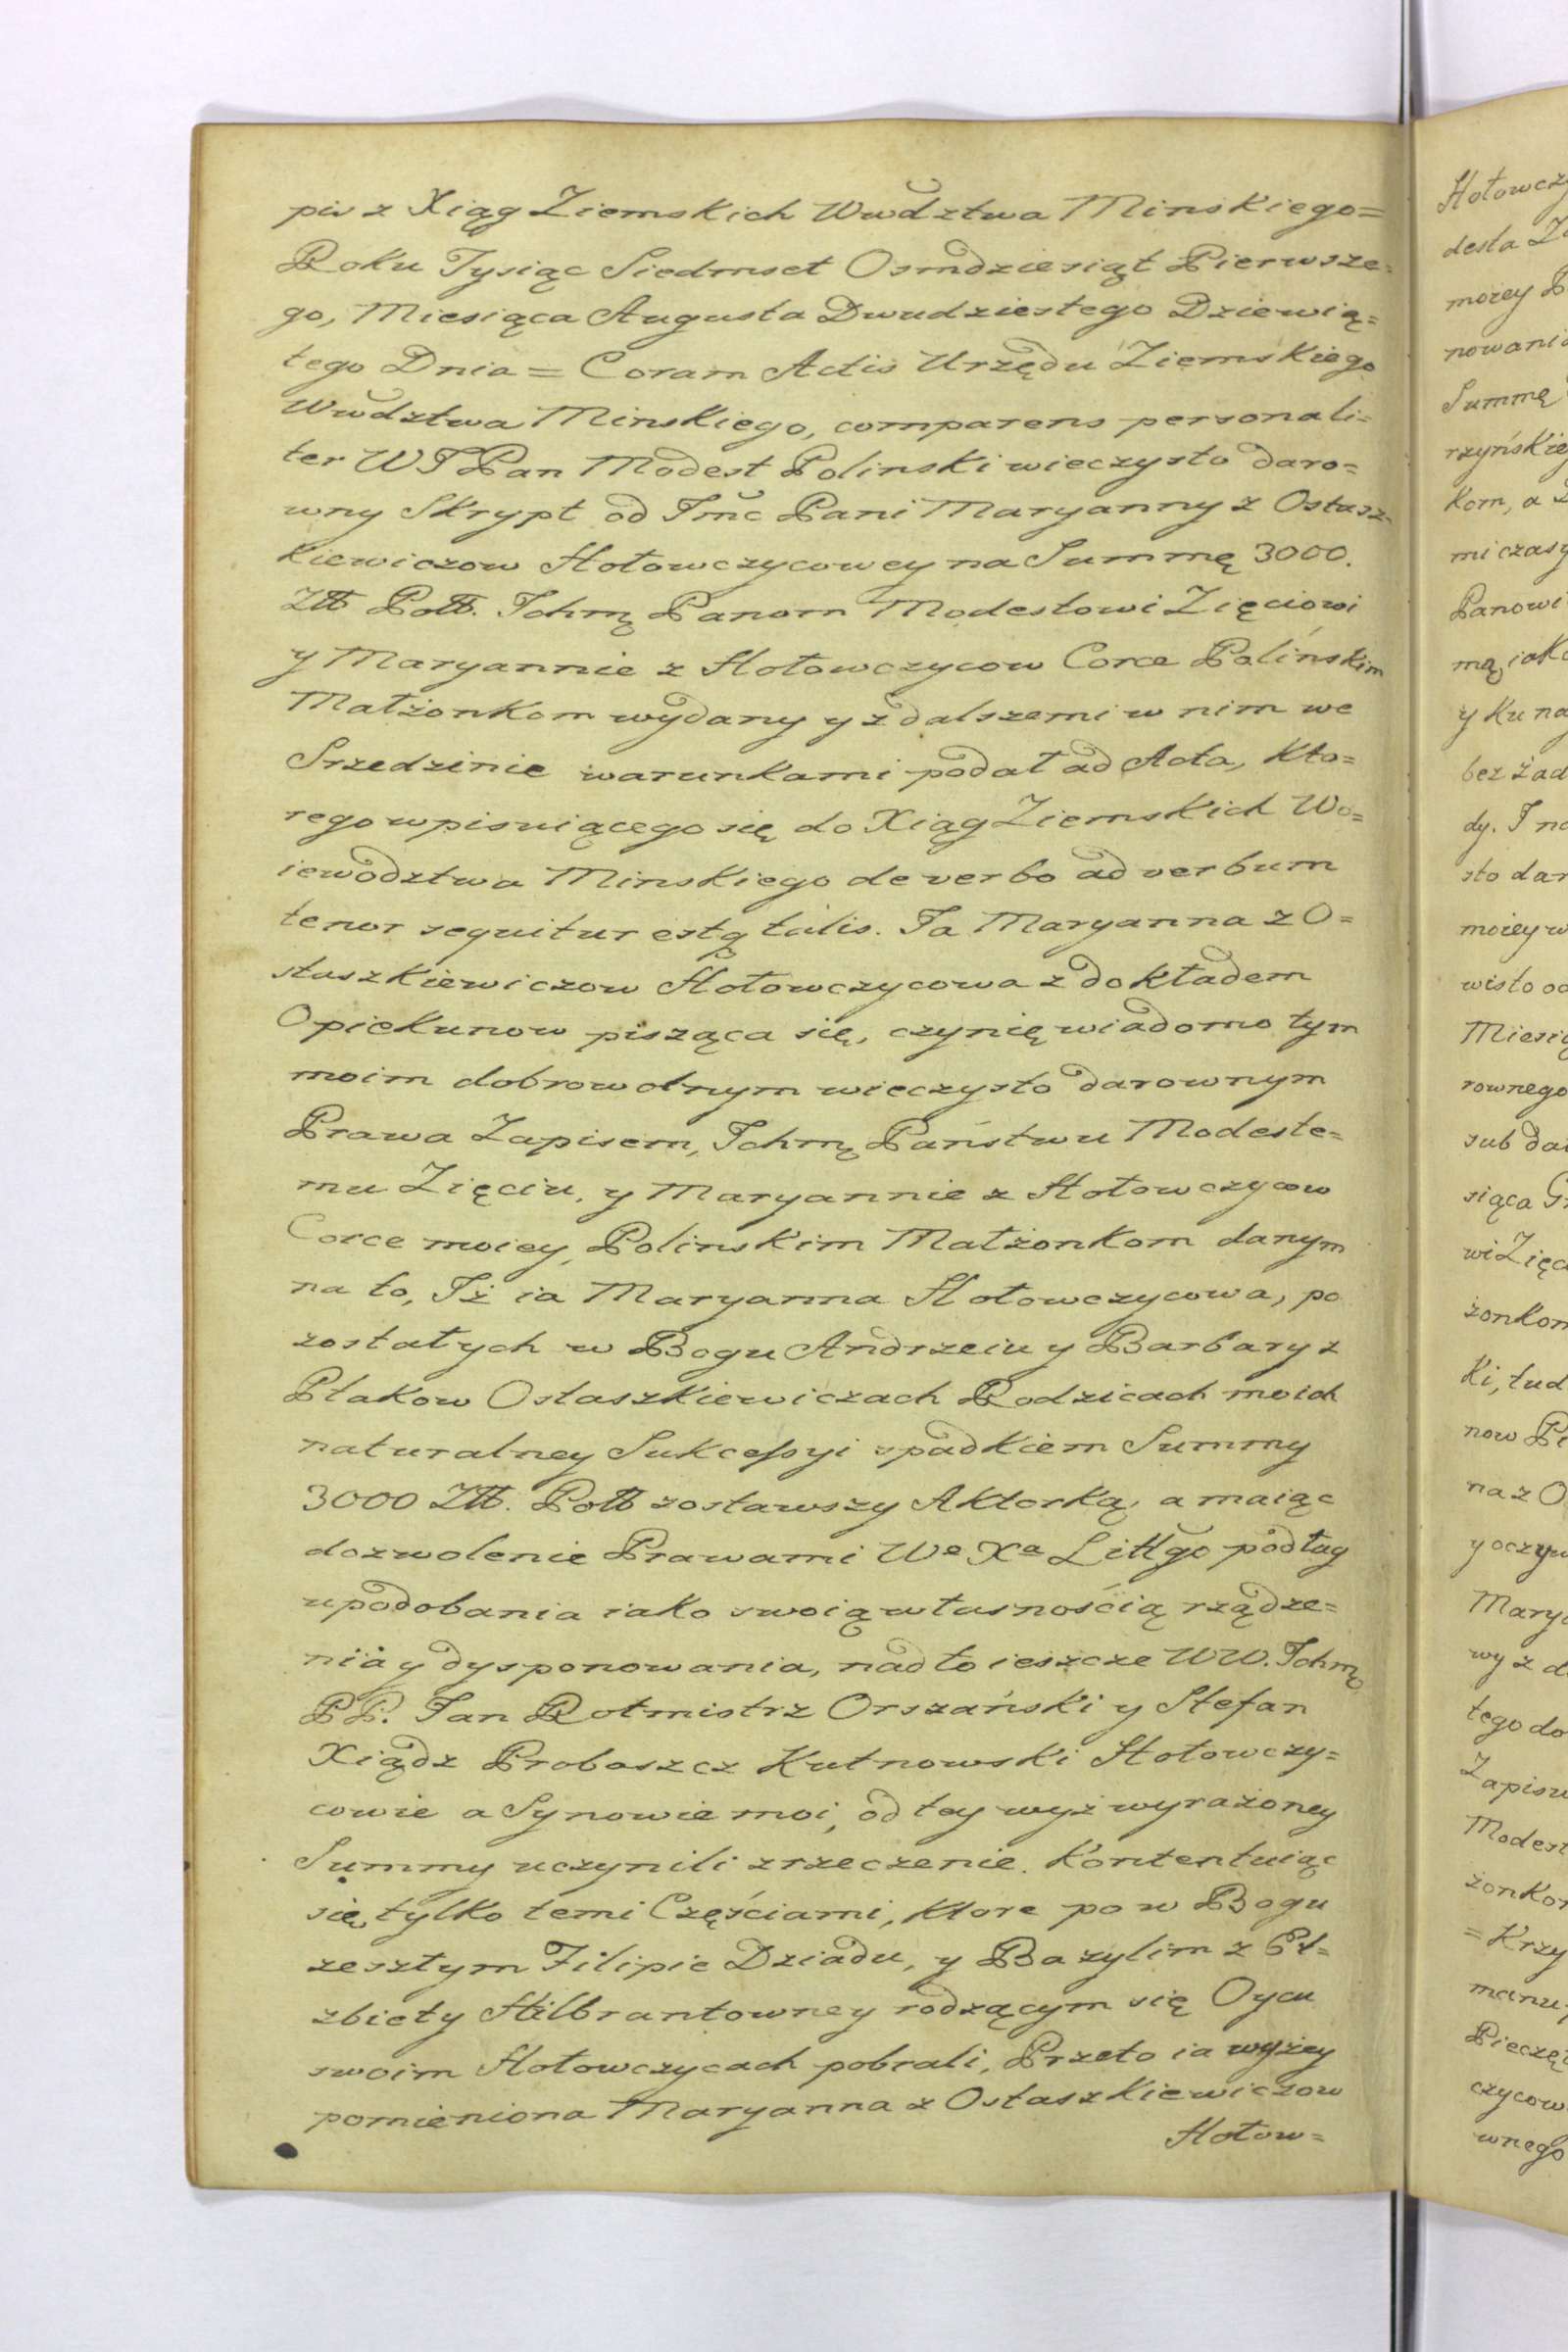 pis z Xiąg Ziemskich Wwdztwa Minskiego=
Roku Tysiąc Siedmset Osmdziesiąt Pierwsze=
go, Miesiąca Augusta Dwudziestego Dziewią=
tego Dnia = Coram Actis Urzędu Ziemskiego
Wwdztwa Minskiego, comparens personali=
ter WJPan Modest Polinski wieczysto daro=
wny Skrypt od Jmc Pani Maryanny z Ostasz=
kiewiczow Hołowczycowey na Summę 3000.
Złł Poll. Ichmę Panom Modestowi Zięciowi
y Maryannie z Hołowczycow Corce Polińskim
Małżonkom wydany y z dalszemi w nim we
Srzedzinie warunkami podał ad Acta, Kto=
rego wpisuiącego się do Xiąg Ziemskich Wo=
iewodztwa Minskiego de verbo ad verbum
tenor sequitur estq talis. Ja Maryanna z O=
staszkiewiczow Hołowczycowa z dokładem
Opiekunow pisząca się, czynię wiadomo tym
moim dobrowolnym wieczysto darownym
Prawa Zapisem, Ichmę Państwu Modeste=
mu Zięciu, y Maryannie z Hołowczycow
Corce moiey, Polinskim Małżonkom danym
na to, Iż ia Maryanna Hołowczycowa, po
zostałych w Bogu Andrzeiu y Barbary z
Ptakow Ostaszkiewiczach Rodzicach moich
naturalney Sukcessyi spadkiem Summy
3000 Złł. Poll zostawszy Aktorką, a maiąc
dozwolenie Prawami Wo Xa Littgo podług
upodobania iako swoią własnośćią rządze=
nia y dysponowania, nad to ieszcze WW. Ichmę
PP. Jan Rotmistrz Orszański y Stefan
Xiądz Proboszcz Kutnowski Hołowczy=
cowie a Synowie moi, od tey wyż wyrażoney
Summy uczynili zrzeczenie. Kontentuiąc
się, tylko temi Częściami, Ktore po w Bogu
zeszłym Filipie Dziadu, y Bazylim z El=
zbiety Hilbrantowney rodzącym się Oycu
swoim Hołowczycach pobrali, Przeto ia wyżey
pomieniona Maryanna z Ostaszkiewiczow
Hołow=
Hołowczy
desta Z
morey P
nowania
Summę
rzyńskie
kom, a
mi czasy
Panowi
mą, iako
y ku na
bez żad
dy. I na
sto dar
moiey w
wisto od
Miesią
rownego
sub da
siąca G
wi Zięc
żonkom
Ki, tud
now P
na z O
y oczyw
Marya
wy z d
tego do
Zapisu
Modest
żonkom
= Krzy
manu
Pieczę
czycow
wnego